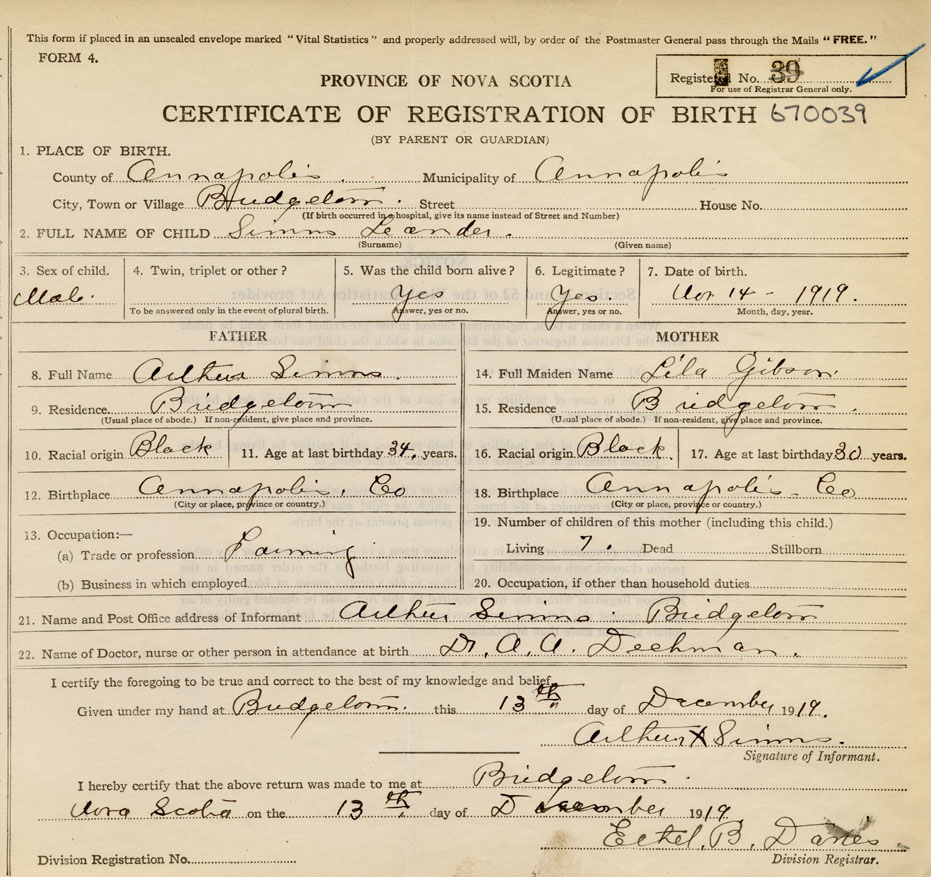 This form if placed in an unsealed envelope marked "Vital Statistics" and properly addressed will, by order of the Postmaster General pass through the Mails "FREE."
FORM 4.
PROVINCE OF NOVA SCOTIA
Registered No. 39
For use of Registrar General only.
CERTIFICATE OF REGISTRATION OF BIRTH 670039
(BY PARENT OR GUARDIAN)
1. PLACE OF BIRTH.
County of Annapolis. Municipality of Annapolis
City, Town or Village Bridgetown. Street House No.
(If birth occurred in hospital, give its name instead of Street and Number)
2. FULL NAME OF CHILD Simms Leander.
(Surname) (Given name)
3. Sex of child. 4. Twin, triplet or other? 5. Was the child born alive? 6. Legitimate? 7. Date of birth.
Male. Yes Yes. Nov 14 - 1919.
To be answered only in the event of plural birth. Answer, yes or no. Answer, yes or no. Month, day, year.
FATHER MOTHER
8. Full Name Arthur Simms. 14. Full Maiden Name Lila Gibson.
9. Residence. Bridgetown 15. Residence Bridgetown.
(Usual place of abode.) If non-resident, give place and province. (Usual place of abode.) If non-resident, give place and province.
10. Racial origin Black 11. Age at last birthday 34. years. 16. Racial origin Black. 17. Age at last birthday 30 years.
12. Birthplace Annapolis. Co 18. Birthplace Annapolis - Co
(City or place, province or country.) (City or place, province or country.)
13. Occupation:— 19. Number of children of this mother (including this child.)
(a) Trade or profession Farming Living 7. Dead Stillborn
(b) Business in which employed 20. Occupation, if other than household duties
21. Name and Post Office address of Informant Arthur Simms. Bridgetown
22. Name of Doctor, nurse or other person in attendance at birth Dr. A. A. Dechman.
I certify the foregoing to be true and correct to the best of my knowledge and belief.
Given under my hand at Bridgetown. this 13th day of December 1919.
Arthur X Simms.
Signature of Informant.
I hereby certify that the above return was made to me at Bridgetown.
Nova Scotia on the 13th. day of December 1919.
Ethel. B. Danes
Division Registration No. Division Registrar.